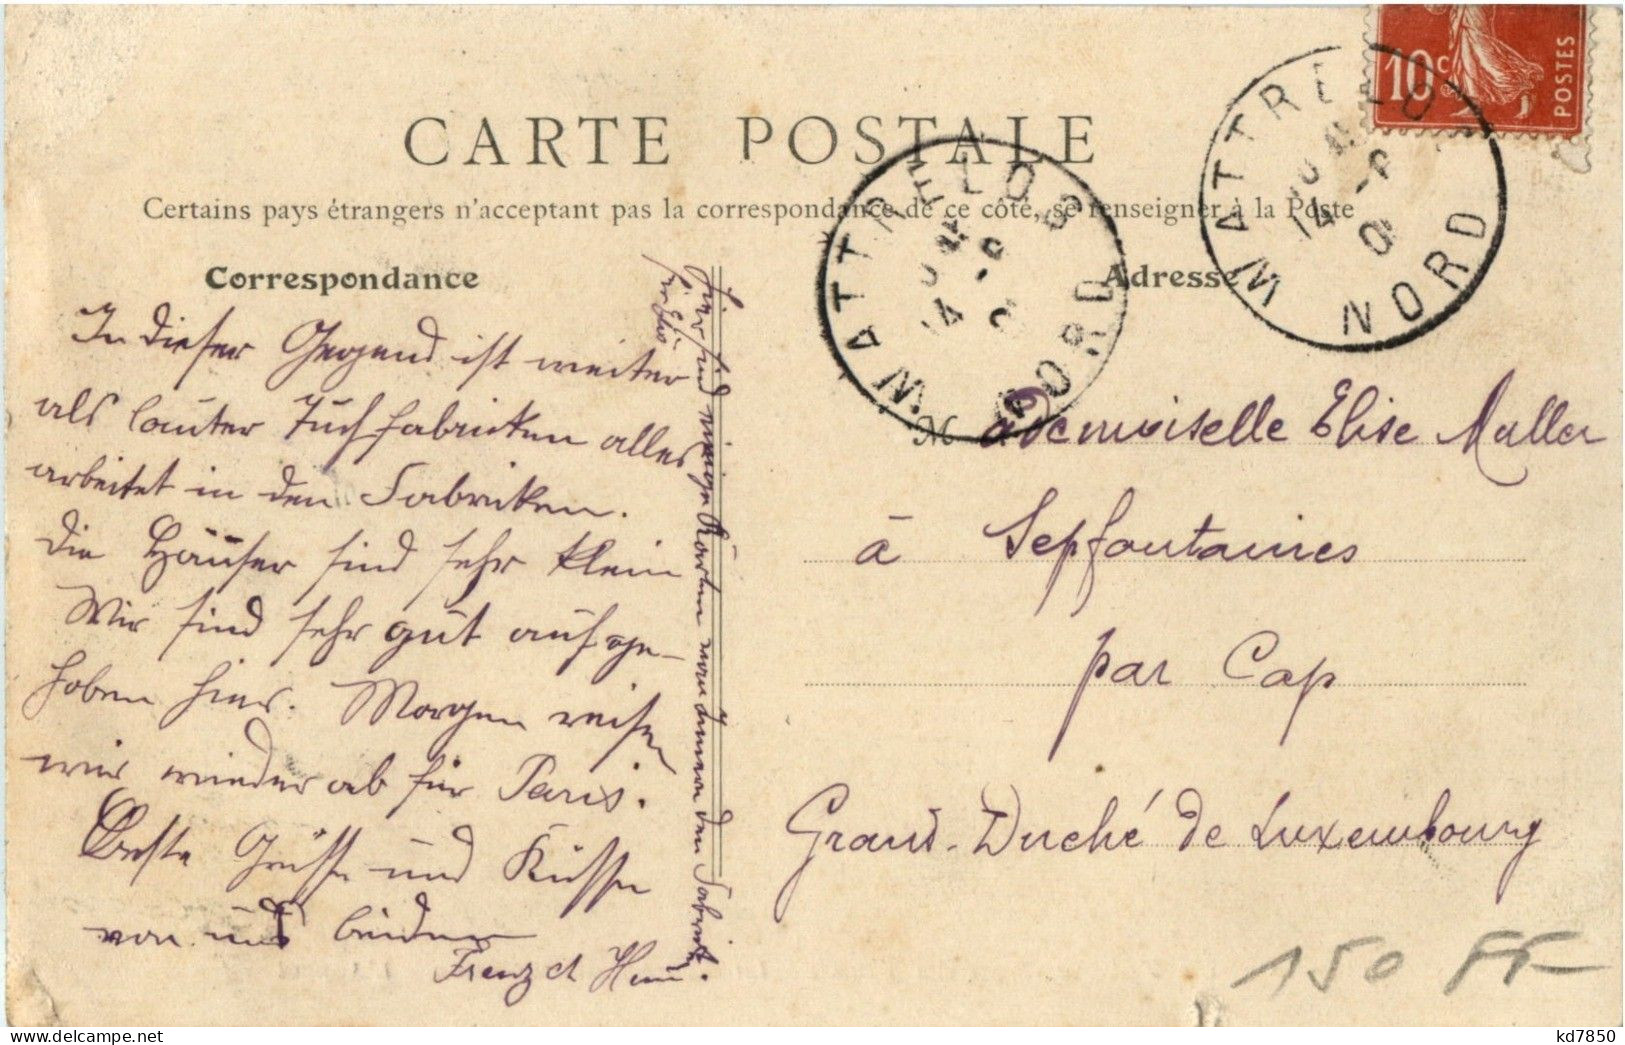 10c POSTES
WATTRELOS NORD
WATTRELOS NORD
CARTE POSTALE
Certains pays étrangers n'acceptent pas la correspondance de ce côté, se renseigner à la Poste
Correspondance
Adresse
In dieser Gegend ist weiter
als lauter Tuchfabriken alles
arbeitet in den Fabriken.
Die Häuser sind sehr klein
Wir sind sehr gut aufge-
hoben hier. Morgen reisen
wir wieder ab für Paris.
Beste Grüsse und Küsse
von uns beiden
Hier sind einige Karten vom Innern der Fabrik.
für
Mademoiselle Elise Muller
à Sepfontaines
par Cap
Grand-Duché de Luxembourg
150 FF
kd7850